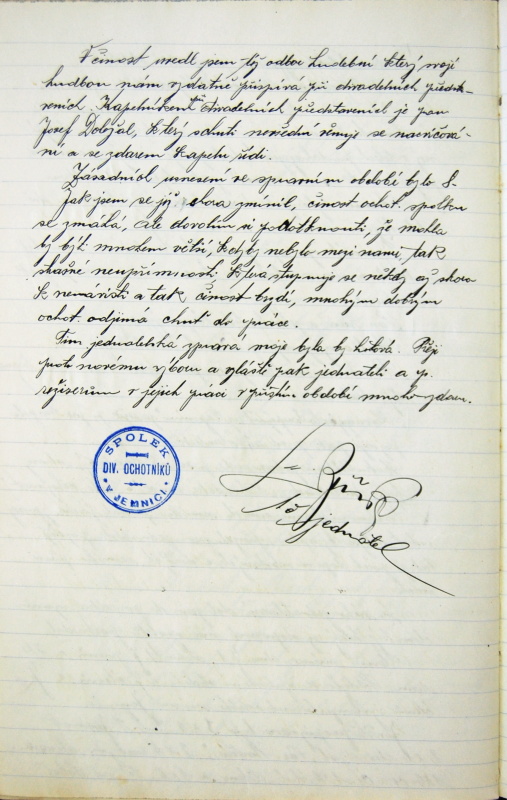 V činost uvedl jsem též odbor hudební který svojí
hudbou nám vydatně přispívá při divadelních předsta-
veních. Kapelníkem při divadelních představeních je pan
Josef Doležal, který s chutí nevšední věnuje se nacvičová-
ní a se zdarem kapelu řídí.
Zásadních usnesení ve správním období bylo 8.
Jak jsem se již shora zmínil, činost ochot. spolku
se zmáhá, ale dovolím si podotknouti, že mohla
by býti mnohem větší, kdyby nebylo mezi námi, tak
strašné neupřímnosti která stupňuje se někdy až skoro
k nenávisti a tak činost brzdí, mnohým dobrým
ochot. odjímá chuť do práce.
Tím jednatelská zpráva moje byla by hotova. Přeji
proto novému výboru a zvláště pak jednateli a p.
režiserům v jejich práci v příštím období mnoho zdaru.
SPOLEK
DIV. OCHOTNÍKŮ
V JEMNICI.
jednatel